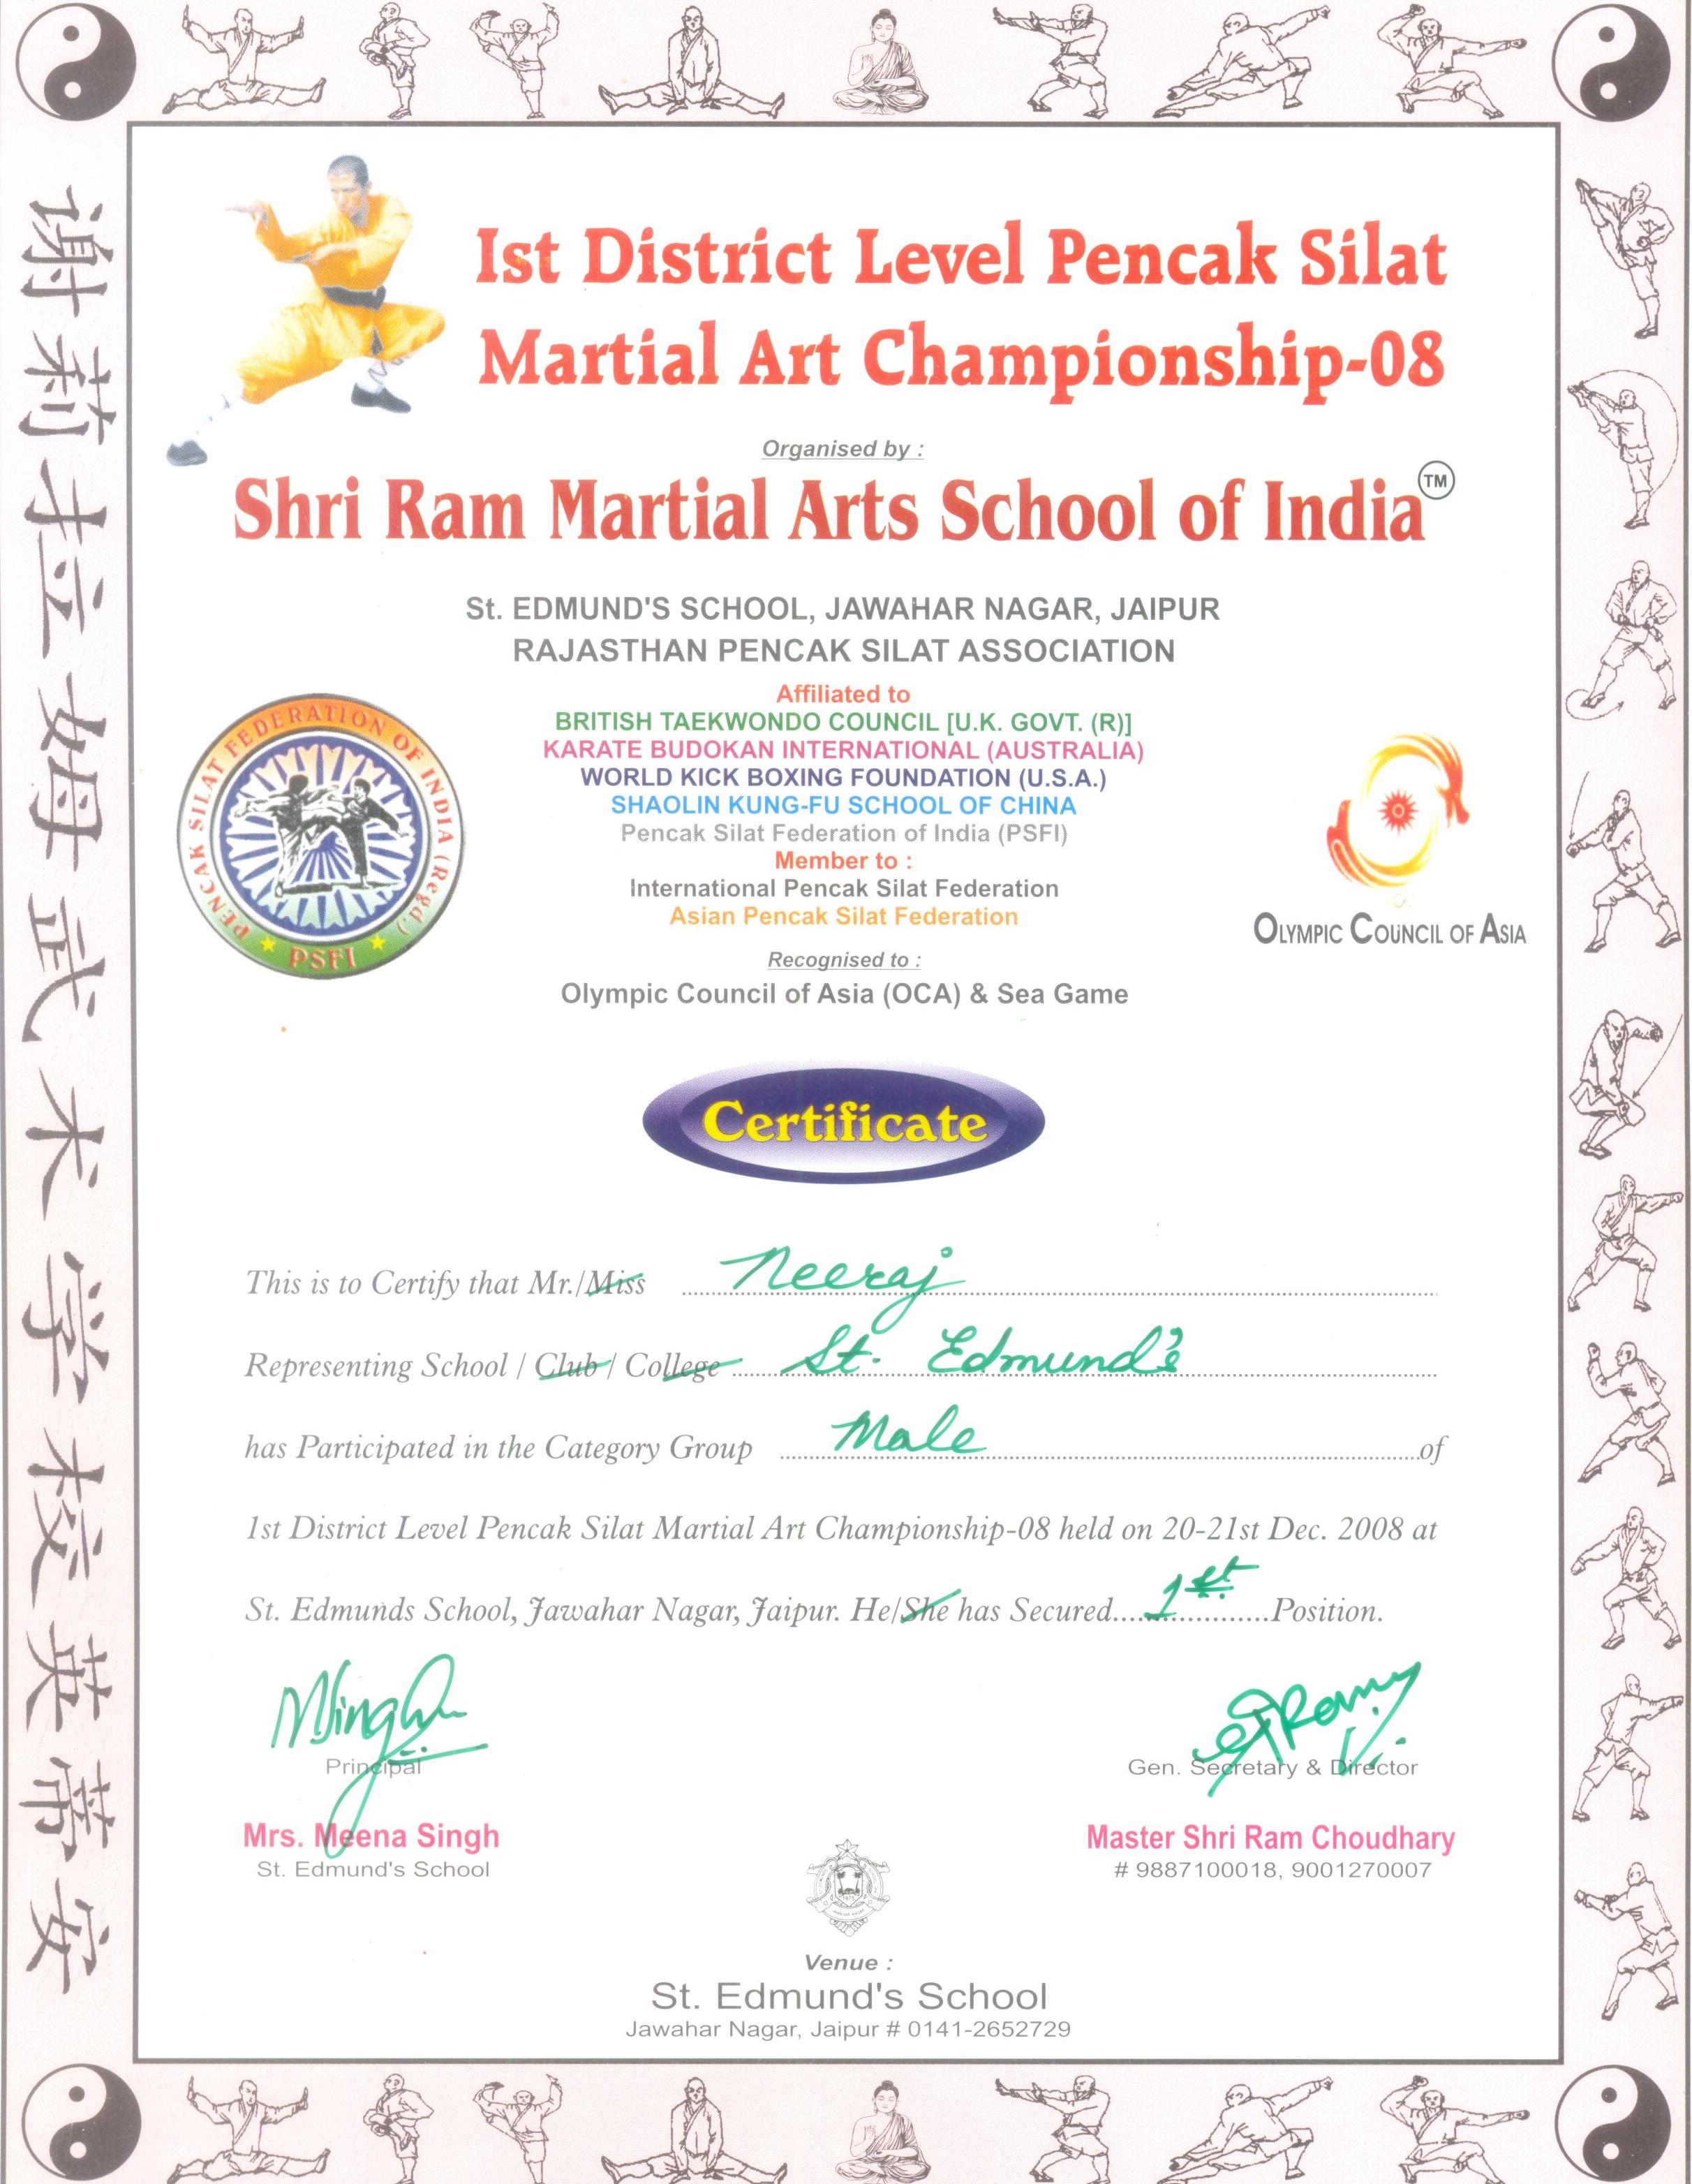 Ist District Level Pencak Silat
Martial Art Championship-08
Organised by :
Shri Ram Martial Arts School of India TM
St. EDMUND'S SCHOOL, JAWAHAR NAGAR, JAIPUR
RAJASTHAN PENCAK SILAT ASSOCIATION
Affiliated to
BRITISH TAEKWONDO COUNCIL [U.K. GOVT. (R)]
KARATE BUDOKAN INTERNATIONAL (AUSTRALIA)
WORLD KICK BOXING FOUNDATION (U.S.A.)
SHAOLIN KUNG-FU SCHOOL OF CHINA
Pencak Silat Federation of India (PSFI)
Member to :
International Pencak Silat Federation
Asian Pencak Silat Federation
PENCAK SILAT FEDERATION OF INDIA (Regd.)
PSFI
OLYMPIC COUNCIL OF ASIA
Recognised to :
Olympic Council of Asia (OCA) & Sea Game
Certificate
This is to Certify that Mr./Miss Neeraj
Representing School / Club / College St. Edmund's
has Participated in the Category Group Male of
1st District Level Pencak Silat Martial Art Championship-08 held on 20-21st Dec. 2008 at
St. Edmunds School, Jawahar Nagar, Jaipur. He/She has Secured....1st....Position.
MSingh
श्रीRam
Principal
Gen. Secretary & Director
Mrs. Meena Singh
Master Shri Ram Choudhary
St. Edmund's School
# 9887100018, 9001270007
Venue :
St. Edmund's School
Jawahar Nagar, Jaipur # 0141-2652729
谢莉拉姆武术学校英蒂安